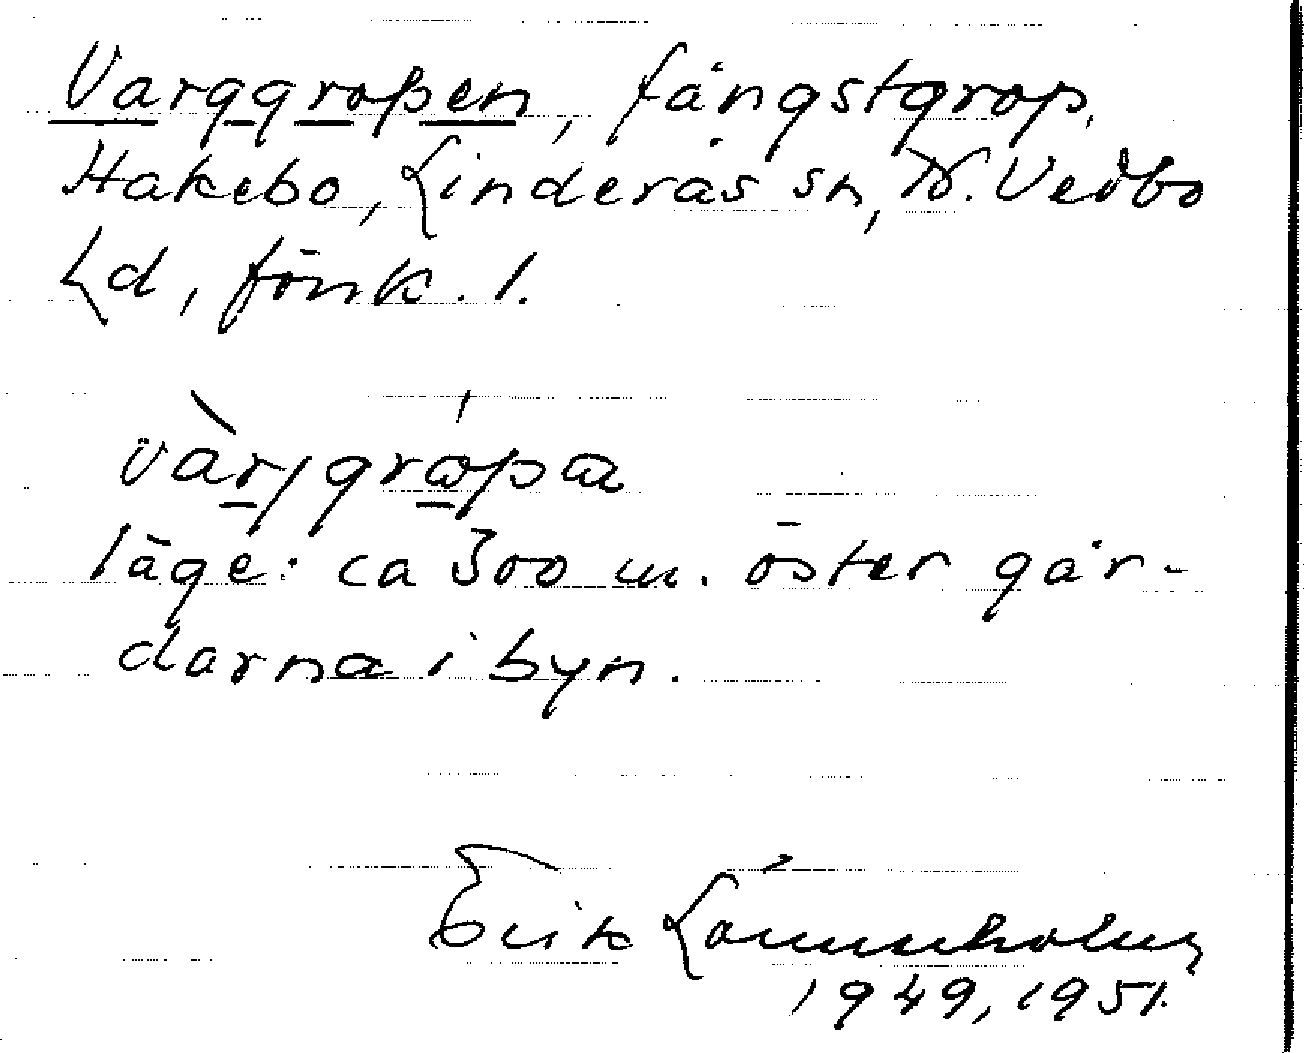 Varggropen, fångstgrop.
Hakebo, Linderås sn, N. Vedbo
hd, Jönk. l.
vàrjgrópa
läge: ca 300 m. öster går-
darna i byn.
Erik Lönnerholm
1949, 1951.